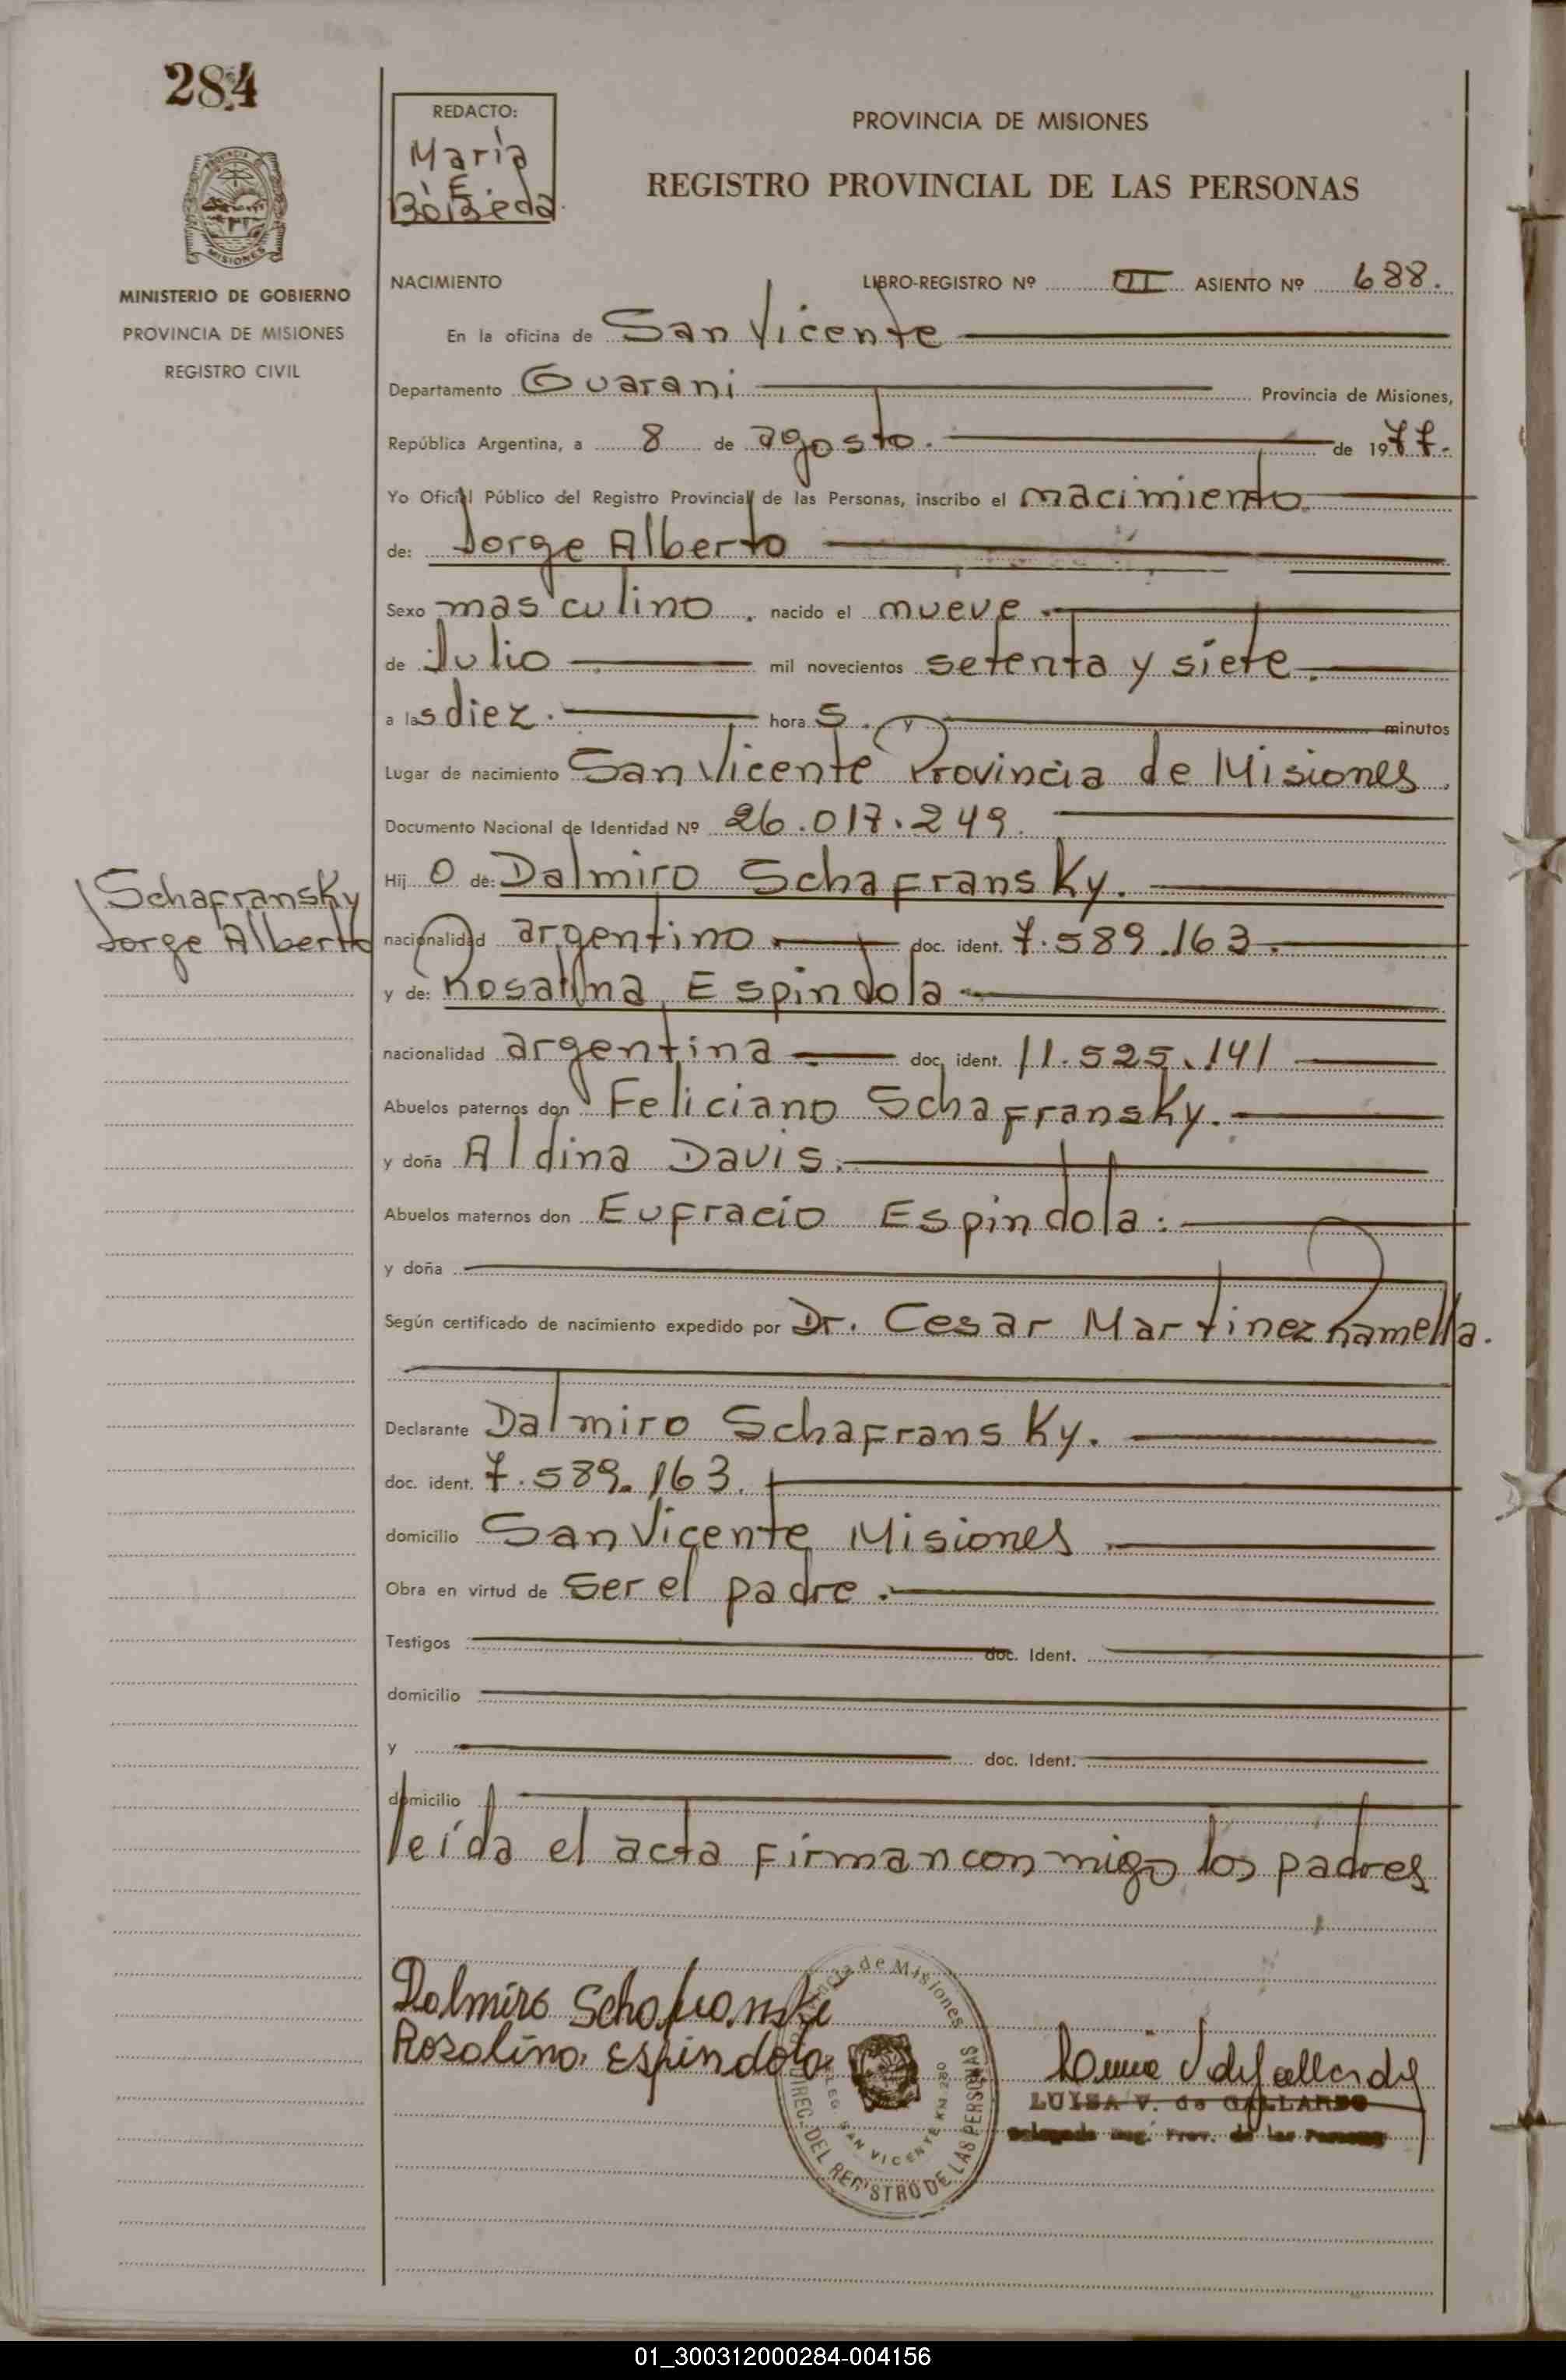 284
REDACTO:
María
E.
PROVINCIA DE MISIONES
REGISTRO PROVINCIAL DE LAS PERSONAS
PROVINCIA DE
MISIONES
MINISTERIO DE GOBIERNO
PROVINCIA DE MISIONES
REGISTRO CIVIL
NACIMIENTO LIBRO-REGISTRO Nº III ASIENTO Nº 688.
En la oficina de San Vicente
Departamento Guarani Provincia de Misiones,
República Argentina, a 8 de agosto. de 1977.
Yo Oficial Público del Registro Provincial de las Personas, inscribo el nacimiento.
de: Jorge Alberto
Sexo masculino. nacido el nueve.
de Julio mil novecientos setenta y siete.
a las diez. horas. y minutos
Lugar de nacimiento San Vicente Provincia de Misiones.
Documento Nacional de Identidad Nº 26.017.249.
Hijo de: Dalmiro Schafransky.
Schafransky
Jorge Alberto
nacionalidad argentino. doc. ident. 7.589.163.
y de: Rosalina Espindola
nacionalidad argentina doc. ident. 11.525.141
Abuelos paternos don Feliciano Schafransky.
y doña Aldina Davis.
Abuelos maternos don Eufracio Espindola.
y doña
Según certificado de nacimiento expedido por Dr. Cesar Martinez Ramella.
Declarante Dalmiro Schafransky.
doc. ident. 7.589.163.
domicilio San Vicente Misiones
Obra en virtud de ser el padre.
Testigos doc. Ident.
domicilio
y doc. Ident.
domicilio
leída el acta firman conmigo los padres
Dalmiro Schafranski
Rosalino Espindola
Provincia de Misiones
DIREC. DEL REGISTRO DE LAS PERSONAS
SAN VICENTE KM 280
LUISA V. de GALLARDO
Delegada Reg. Prov. de las Personas
01_300312000284-004156